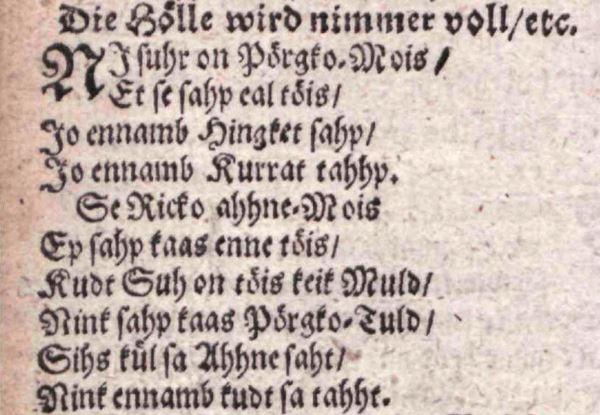 Die Hölle wird nimmer voll/etc.
NI suhr on Pörgko-Mois/
Et se sahp eal töis/
Jo ennamb Hingket sahp/
Jo ennamb Kurrat tahhp.
Se Ricko ahhne-Mois
Ep sahp kaas enne töis/
Kudt Suh on töis keik Muld/
Nink sahp kaas Pörgko-Tuld/
Sihs kül sa Ahhne saht/
Nink ennamb kudt sa tahht.